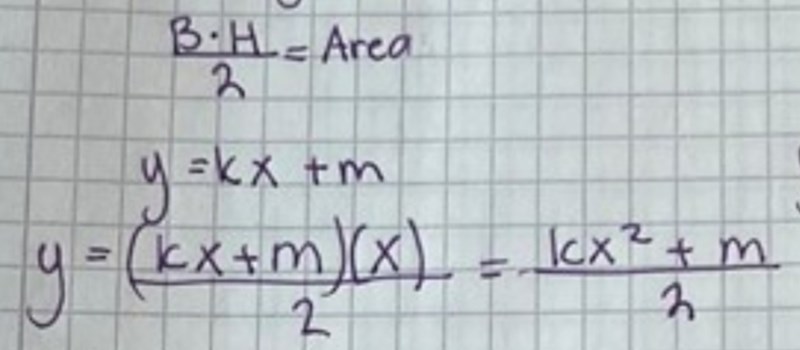 B·H/2 = Area
y = kx + m
y = (kx+m)(x)/2 = kx² + m/2